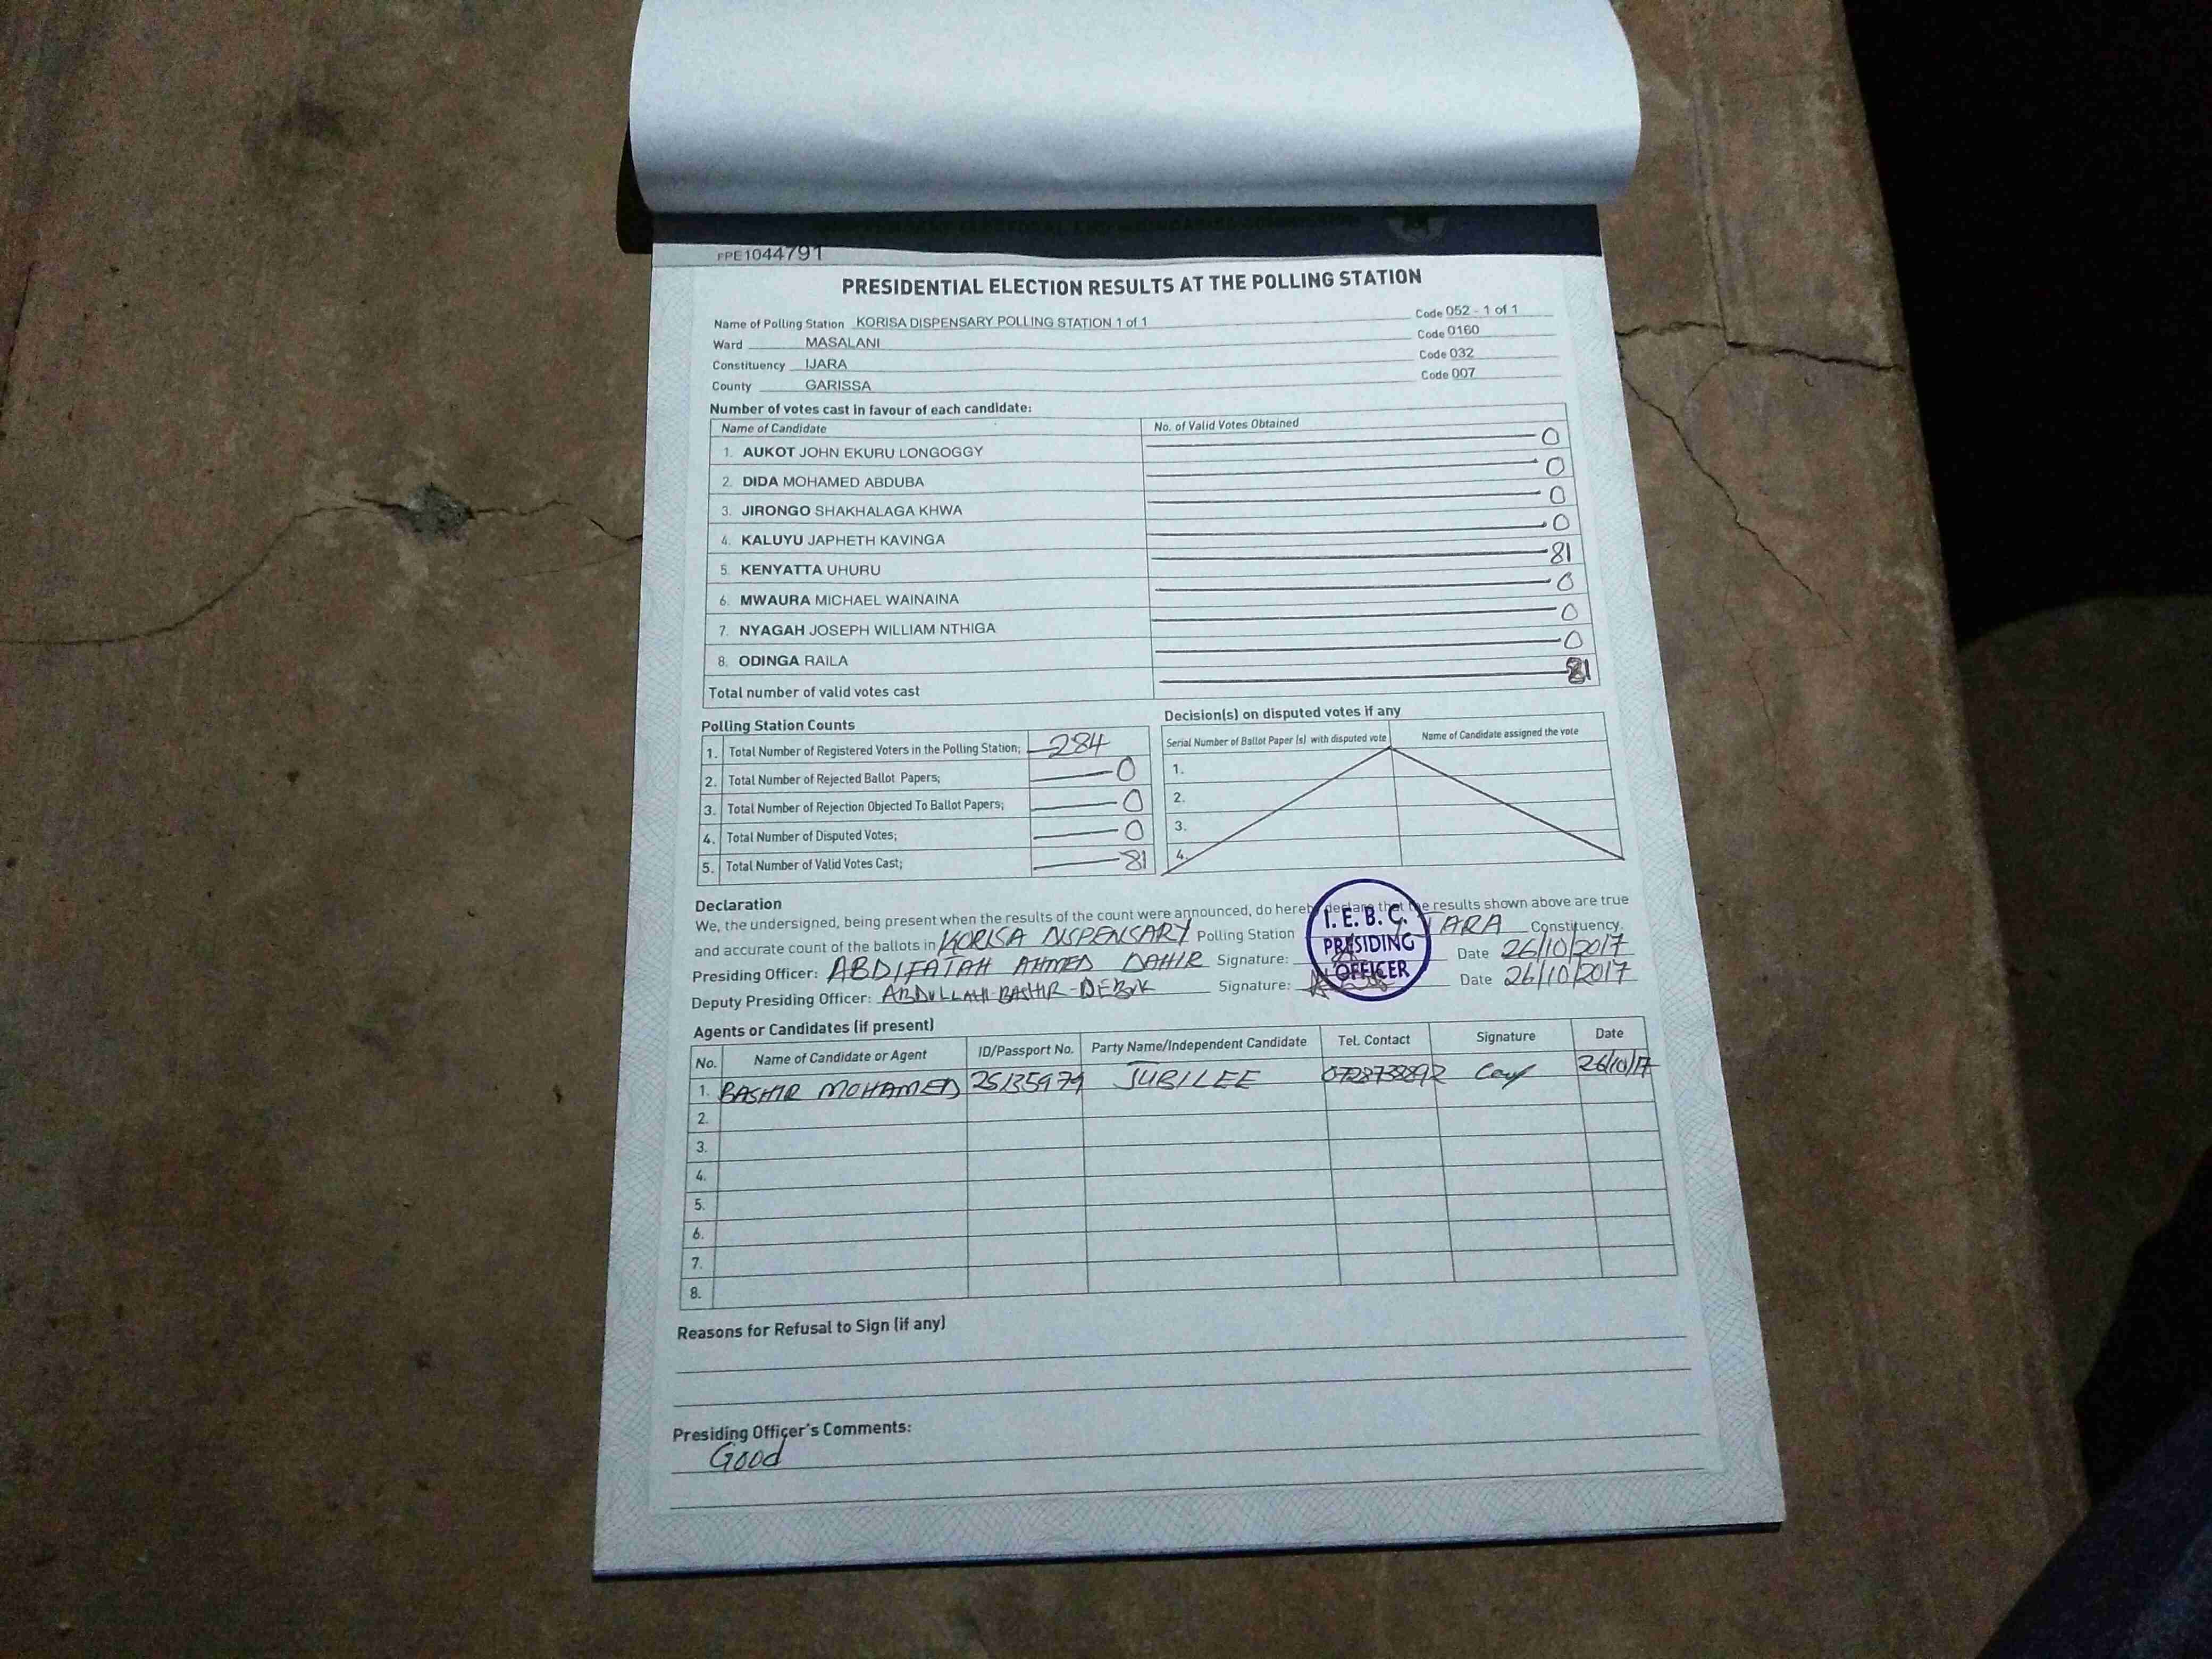 FPE1044791
PRESIDENTIAL ELECTION RESULTS AT THE POLLING STATION
Name of Polling Station KORISA DISPENSARY POLLING STATION 1 of 1 Code 052 - 1 of 1
Ward MASALANI Code 0160
Constituency IJARA Code 032
County GARISSA Code 007
Number of votes cast in favour of each candidate:
Name of Candidate No. of Valid Votes Obtained
1. AUKOT JOHN EKURU LONGOGGY 0
2. DIDA MOHAMED ABDUBA 0
3. JIRONGO SHAKHALAGA KHWA 0
4. KALUYU JAPHETH KAVINGA 0
5. KENYATTA UHURU 81
6. MWAURA MICHAEL WAINAINA 0
7. NYAGAH JOSEPH WILLIAM NTHIGA 0
8. ODINGA RAILA 0
Total number of valid votes cast 81
Polling Station Counts
1. Total Number of Registered Voters in the Polling Station; 284
2. Total Number of Rejected Ballot Papers; 0
3. Total Number of Rejection Objected To Ballot Papers; 0
4. Total Number of Disputed Votes; 0
5. Total Number of Valid Votes Cast; 81
Decision(s) on disputed votes if any
Serial Number of Ballot Paper (s) with disputed vote Name of Candidate assigned the vote
1.
2.
3.
4.
Declaration
We, the undersigned, being present when the results of the count were announced, do hereby declare that the results shown above are true
and accurate count of the ballots in KORISA DISPENSARY Polling Station IJARA Constituency.
Presiding Officer: ABDIFATAH AHMED DAHIR Signature: Date 26/10/2017
Deputy Presiding Officer: ABDULLAHI BASHIR Signature: Date 26/10/2017
I.E.B.C.
PRESIDING
OFFICER
Agents or Candidates (if present)
No. Name of Candidate or Agent ID/Passport No. Party Name/Independent Candidate Tel. Contact Signature Date
1. BASHIR MOHAMED 25135979 JUBILEE 0728738892 26/10/17
2.
3.
4.
5.
6.
7.
8.
Reasons for Refusal to Sign (if any)
Presiding Officer's Comments:
Good